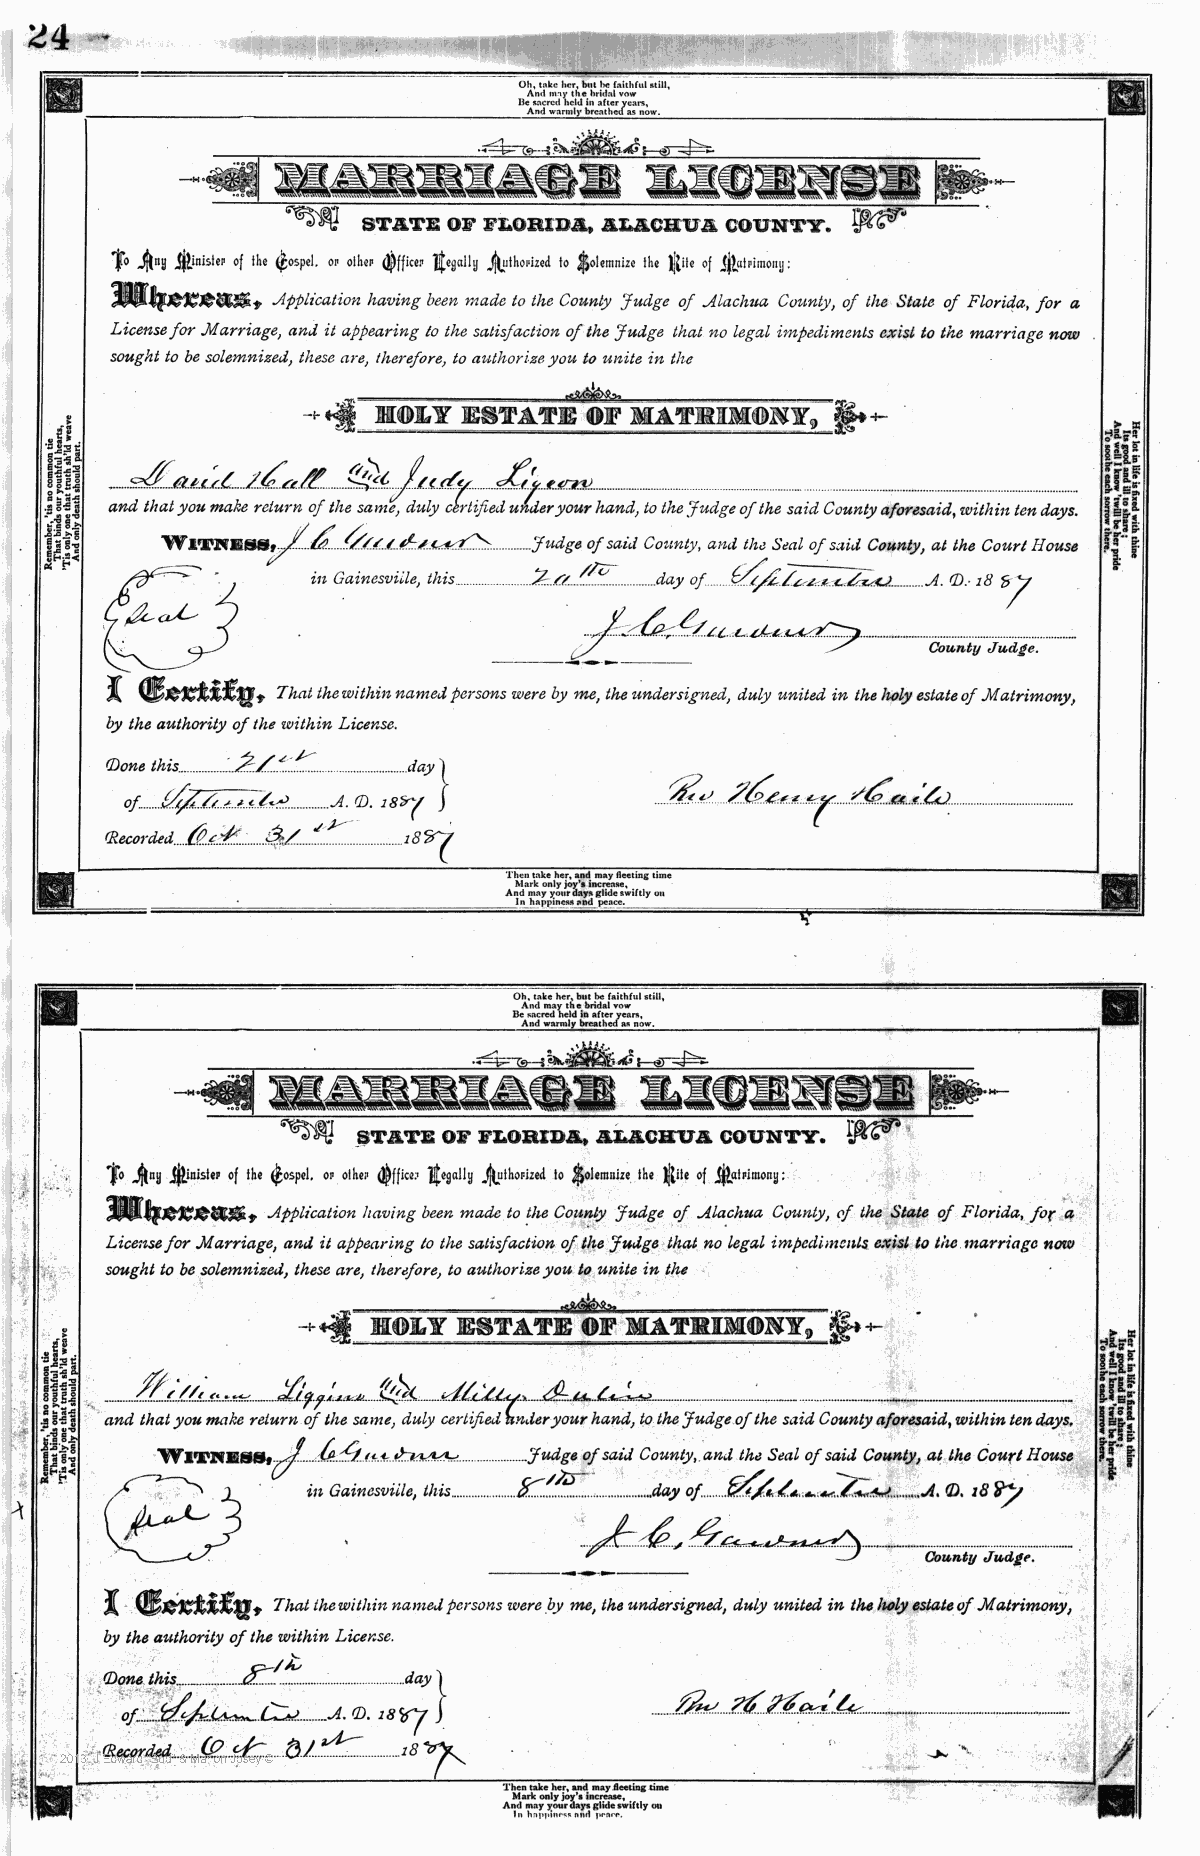 24
Oh, take her, but be faithful still,
And may the bridal vow
Be sacred held in after years,
And warmly breathed as now.
MARRIAGE LICENSE
STATE OF FLORIDA, ALACHUA COUNTY.
To Any Minister of the Gospel, or other Officer Legally Authorized to Solemnize the Rite of Matrimony:
Whereas, Application having been made to the County Judge of Alachua County, of the State of Florida, for a
License for Marriage, and it appearing to the satisfaction of the Judge that no legal impediments exist to the marriage now
sought to be solemnized, these are, therefore, to authorize you to unite in the
HOLY ESTATE OF MATRIMONY,
David Hall and Judy Ligeon
and that you make return of the same, duly certified under your hand, to the Judge of the said County aforesaid, within ten days.
WITNESS, J C Gardner Judge of said County, and the Seal of said County, at the Court House
in Gainesville, this 20th day of September A. D. 1887
Seal
J. C. Gardner
County Judge.
I Certify, That the within named persons were by me, the undersigned, duly united in the holy estate of Matrimony,
by the authority of the within License.
Done this 21st day
of September A. D. 1887
Rev Henry Haile
Recorded Oct 31st 1887
Remember, 'tis no common tie
That binds our youthful hearts,
'Tis only one that truth sh'ld weave
And only death should part.
Her lot in life is fixed with thine
Its good and ill to share;
And well I know 'twill be her pride
To soothe each sorrow there.
Then take her, and may fleeting time
Mark only joy's increase,
And may your days glide swiftly on
In happiness and peace.
Oh, take her, but be faithful still,
And may the bridal vow
Be sacred held in after years,
And warmly breathed as now.
MARRIAGE LICENSE
STATE OF FLORIDA, ALACHUA COUNTY.
To Any Minister of the Gospel, or other Officer Legally Authorized to Solemnize the Rite of Matrimony:
Whereas, Application having been made to the County Judge of Alachua County, of the State of Florida, for a
License for Marriage, and it appearing to the satisfaction of the Judge that no legal impediments exist to the marriage now
sought to be solemnized, these are, therefore, to authorize you to unite in the
HOLY ESTATE OF MATRIMONY,
William Liggins and Milly
and that you make return of the same, duly certified under your hand, to the Judge of the said County aforesaid, within ten days.
WITNESS, J C Gardner Judge of said County, and the Seal of said County, at the Court House
in Gainesville, this 8th day of September A. D. 1887
Seal
J. C. Gardner
County Judge.
I Certify, That the within named persons were by me, the undersigned, duly united in the holy estate of Matrimony,
by the authority of the within License.
Done this 8th day
of September A. D. 1887
Rev H Haile
Recorded Oct 31st 1887
Remember, 'tis no common tie
That binds our youthful hearts,
'Tis only one that truth sh'ld weave
And only death should part.
Her lot in life is fixed with thine
Its good and ill to share;
And well I know 'twill be her pride
To soothe each sorrow there.
Then take her, and may fleeting time
Mark only joy's increase,
And may your days glide swiftly on
In happiness and peace.